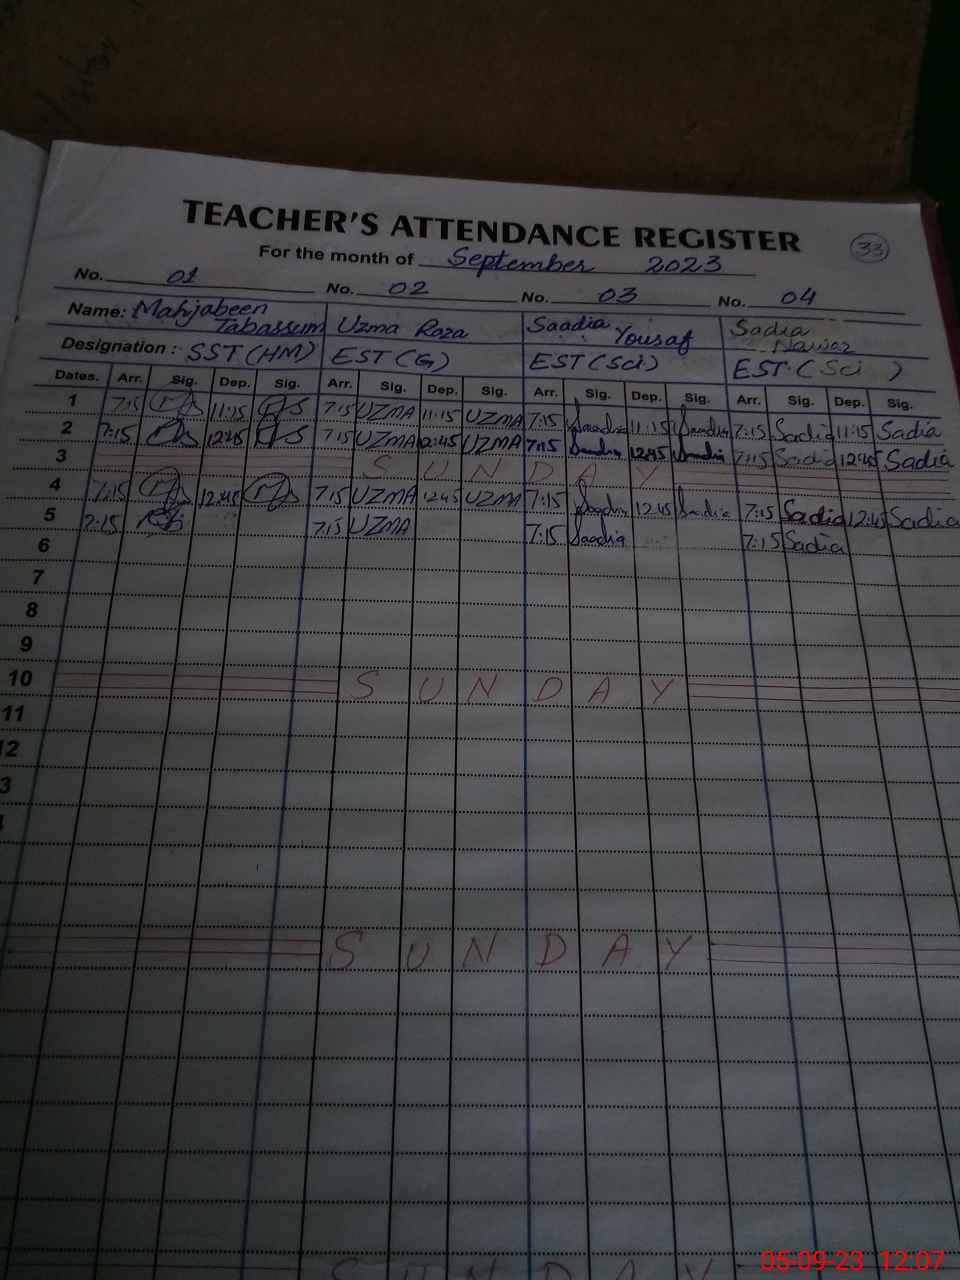 TEACHER'S ATTENDANCE REGISTER 33
For the month of September 2023
No. 01 No. 02 No. 03 No. 04
Name: Mahjabeen Tabassum Uzma Raza Saadia Yousaf Sadia Nawaz
Designation : SST (HM) EST (G) EST (Sci) EST (Sci )
Dates. Arr. Sig. Dep. Sig. Arr. Sig. Dep. Sig. Arr. Sig. Dep. Sig. Arr. Sig. Dep. Sig.
1 7:15 11:15 7:15 UZMA 11:15 UZMA 7:15 Saadia 11:15 Saadia 7:15 Sadia 11:15 Sadia
2 7:15 12:45 7:15 UZMA 12:45 UZMA 7:15 Saadia 12:45 Saadia 7:15 Sadia 12:45 Sadia
3 S U N D A Y
4 7:15 12:45 7:15 UZMA 12:45 UZMA 7:15 Saadia 12:45 Saadia 7:15 Sadia 12:45 Sadia
5 7:15 7:15 UZMA 7:15 Saadia 7:15 Sadia
6
7
8
9
10 S U N D A Y
11
12
3
S U N D A Y
S U N D A Y
05-09-23 12:07